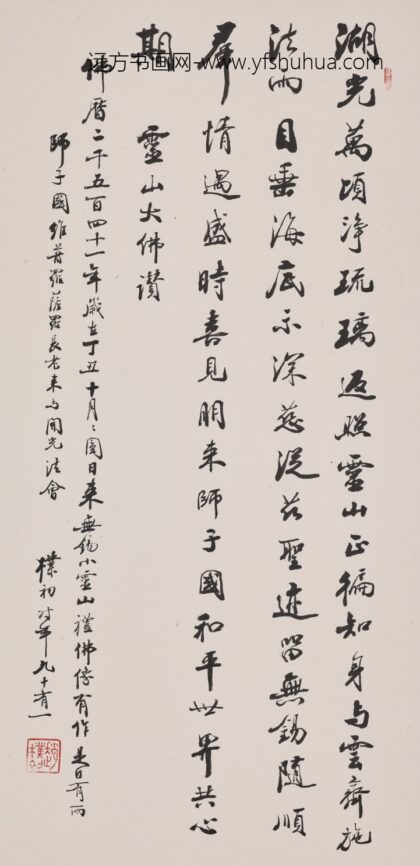 远方书画网-www.yfshuhua.com
湖光萬頃淨琉璃返照靈山正徧知身与雲齊施
法雨目垂海底示深慈從茲聖迹留無錫隨順
羣情遇盛時喜見朋来師子國和平世界共心
期 靈山大佛讚
佛曆二千五百四十一年歲在丁丑十月〻圓日来無錫小靈山禮佛有作是日有雨
師子國維普羅薩羅長老来与開光法會
樸初时年九十有一
趙樸初